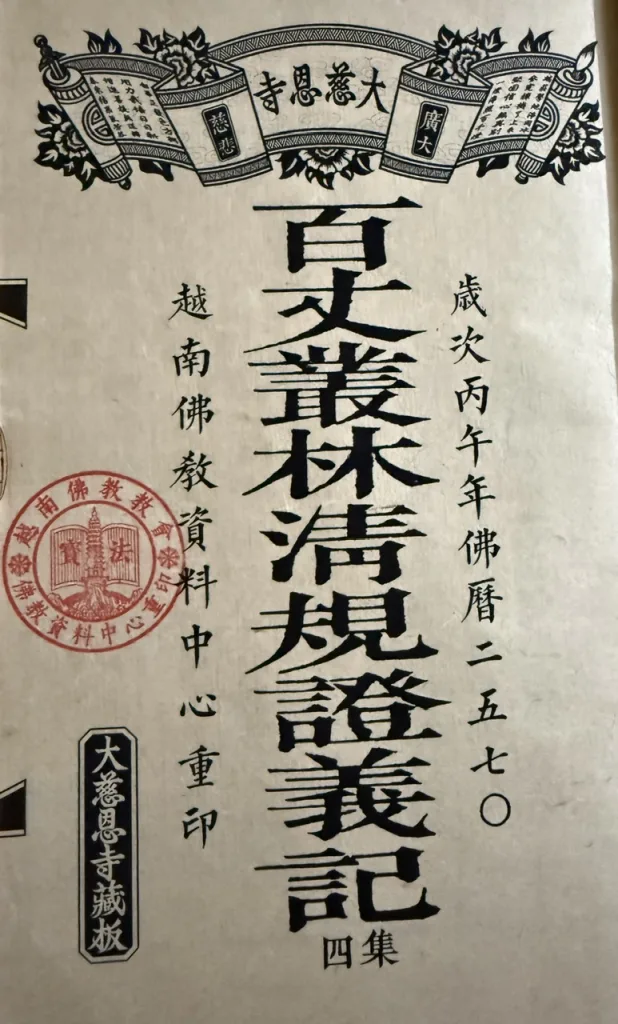 大慈恩寺
廣大
慈悲
歲次丙午年佛曆二五七〇
百丈叢林清規證義記
四集
越南佛教資料中心重印
越南佛教教會
佛教資料中心
印章
法寶
大慈恩寺藏板